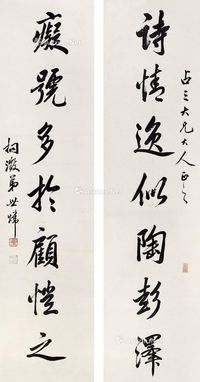 占三大兄大人正之
詩情逸似陶彭澤
癡號多於顧愷之
桐澂弟世焯